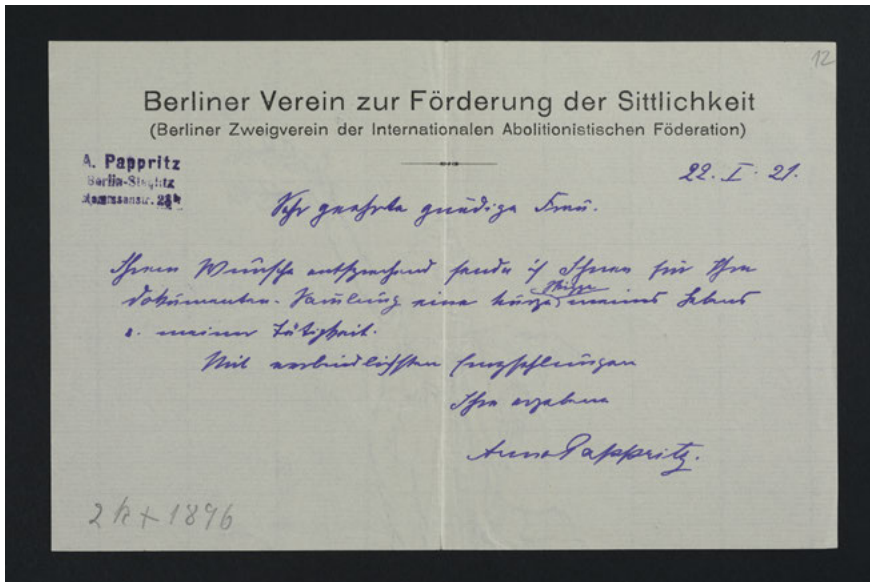 12
Berliner Verein zur Förderung der Sittlichkeit
(Berliner Zweigverein der Internationalen Abolitionistischen Föderation)
A. Pappritz
Berlin-Steglitz
22. I. 21.
Sehr geehrte gnädige Frau.
Ihrem Wunsche entsprechend sende ich Ihnen für Ihre
Dokumenten-Samlung eine kurze Skizze meines Lebens
u. meiner Tätigkeit.
Mit verbindlichsten Empfehlungen
Ihre ergebene
Anna Pappritz.
1896